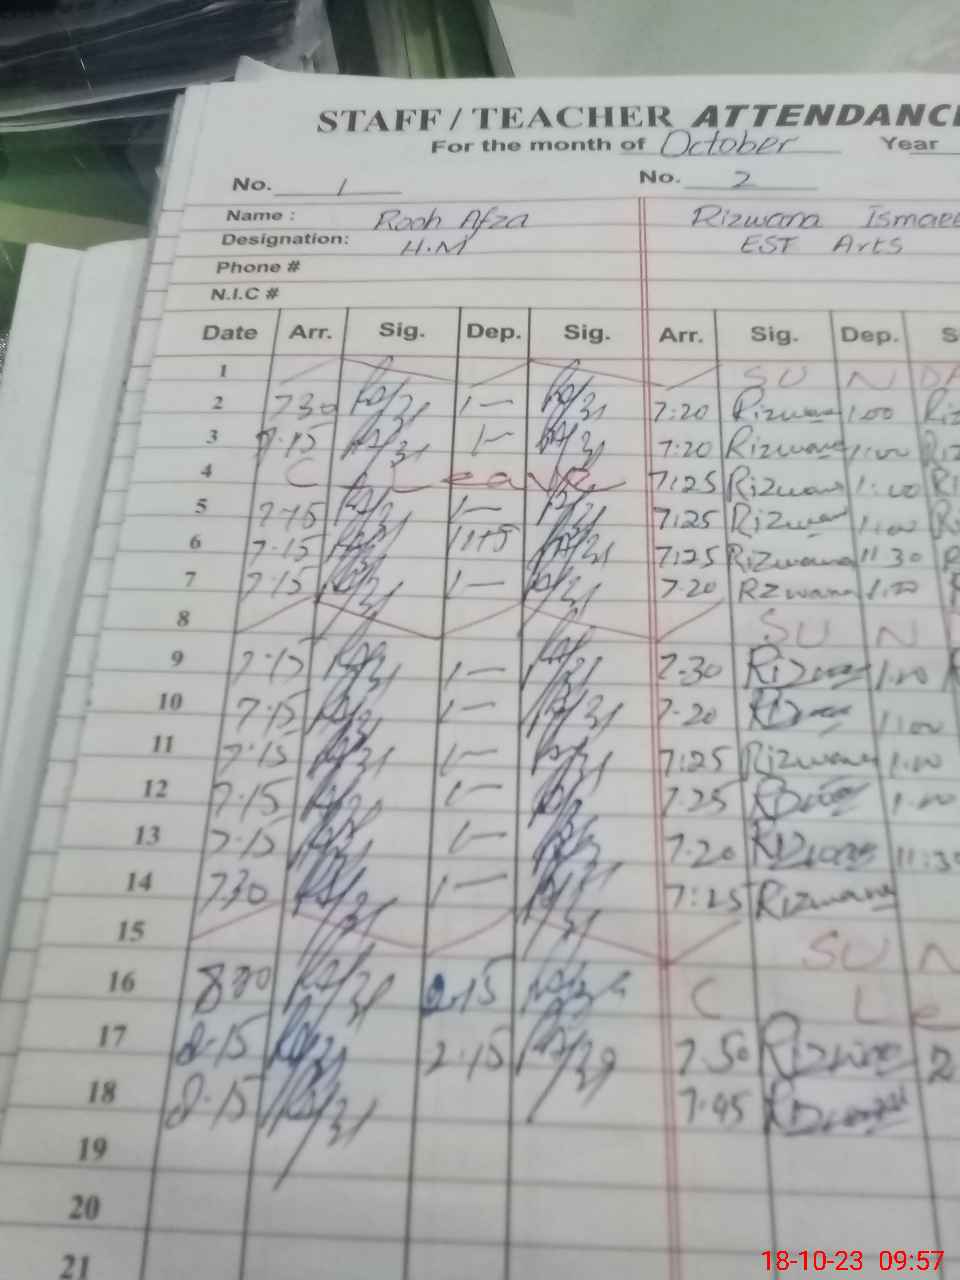 STAFF / TEACHER ATTENDANC
For the month of October Year
No. 1 No. 2
Name : Rooh Afza Rizwana Ismae
Designation: H.M EST Arts
Phone #
N.I.C #
Date Arr. Sig. Dep. Sig. Arr. Sig. Dep. S
1 SU N DA
2 730 1— 7:20 Rizwana 1.00 Riz
3 7.15 1— 7:20 Rizwana 1:00 Riz
4 C Leave 7:25 Rizwana 1:00 Ri
5 7.15 1— 7:25 Rizwan 1:00 R
6 7.15 1115 7:25 Rizwana 11.30 R
7 7.15 1— 7.20 Rzwana 1.00
8 SU N D
9 7.15 1— 7.30 1.00
10 7.15 1— 7.20 1.00
11 7.15 1— 7:25 Rizwana 1.00
12 7.15 1— 7.25 1.00
13 7.15 1— 7.20 11:30
14 730 1— 7:25 Rizwana
15 SU N
16 830 2.15 C Le
17 8.15 2.15 7.50 2
18 8.15 7.45
19
20
21
18-10-23 09:57